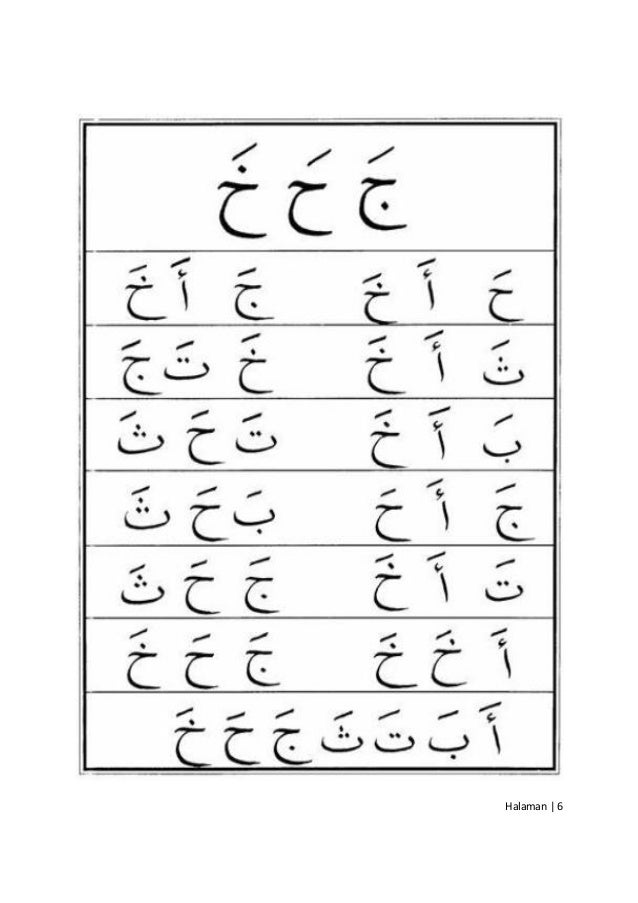 جَ حَ خَ
حَ أَ خَ جَ أَ خَ
ثَ أَ خَ خَ تَ جَ
بَ أَ خَ تَ حَ ثَ
جَ أَ حَ بَ حَ ثَ
تَ أَ خَ جَ حَ ثَ
أَ خَ خَ جَ حَ خَ
أَ بَ تَ ثَ جَ حَ خَ
Halaman | 6